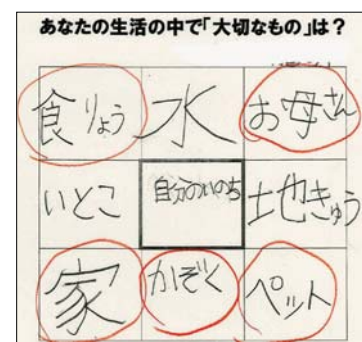 あなたの生活の中で「大切なもの」は？
食りょう 水 お母さん
いとこ 自分のいのち 土地きゅう
家 かぞく ペット